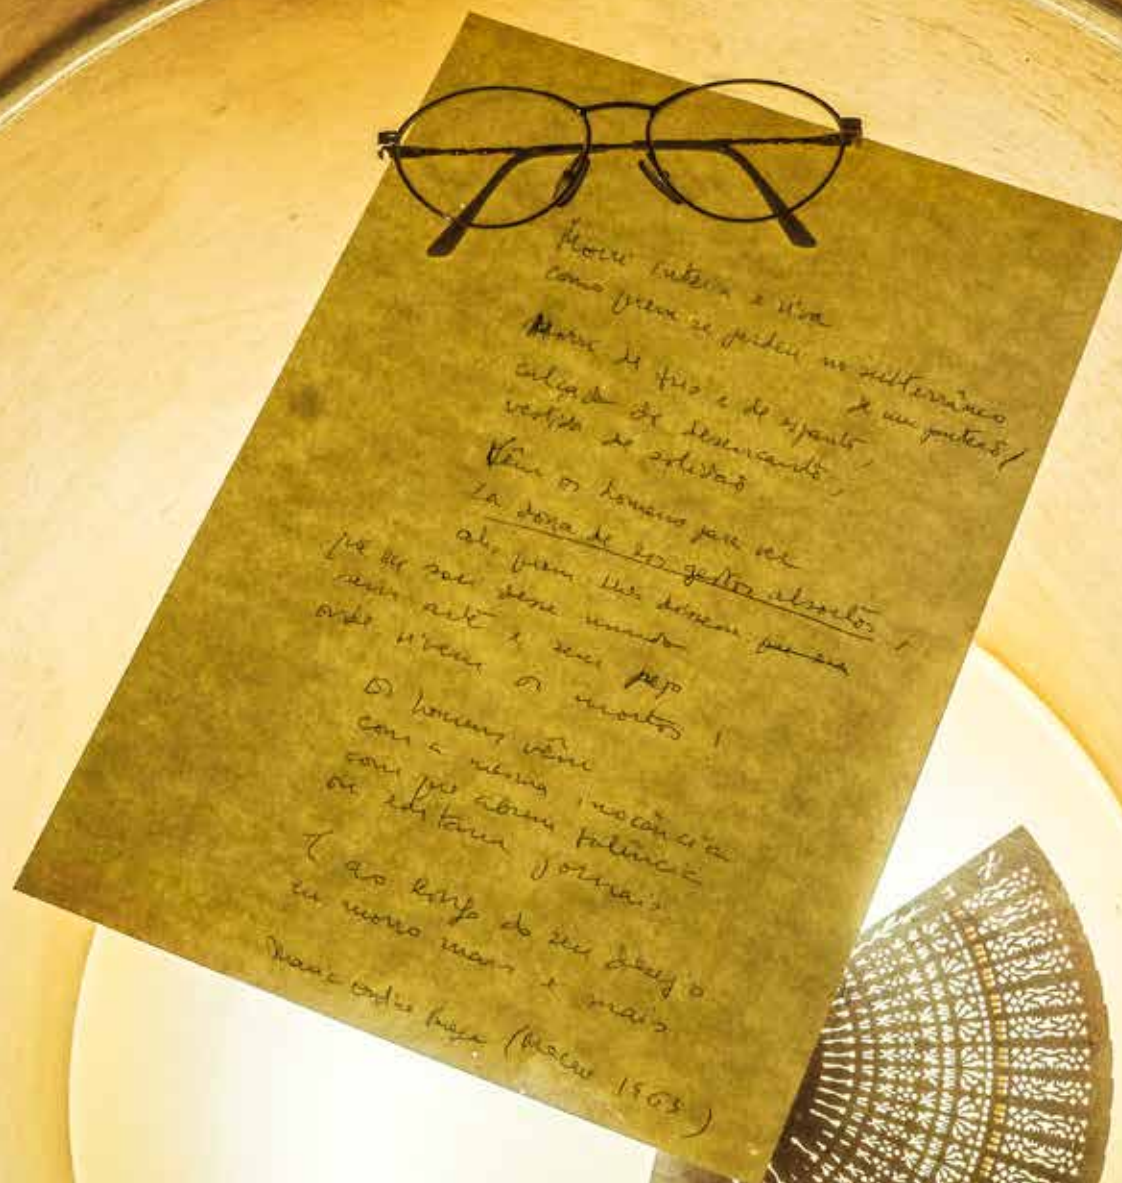 Morri inteira e viva
como quem se perdeu no subterrâneo
de um panteão/
Morri de frio e de espanto,
calçada de desencanto,
vestida de solidão
Vêm os homens para ver
a dona de os gestos absortos,
ah, quem lhes dissesse
que eu sou desse mundo
sem arte e sem pejo
onde vivem os mortos!
Os homens vêm
com a mesma inocência
com que abrem falência
ou editam jornais.
E ao longo do seu desejo
eu morro mais e mais.
Maria (Macau 1963)